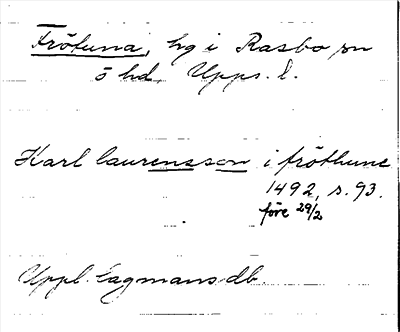 Frötuna, hg i Rasbo sn
ö hd, Upps. l.
Karl laurensson i fröthune
1492, s. 93.
före 29/2
Uppl. Lagmansdb.